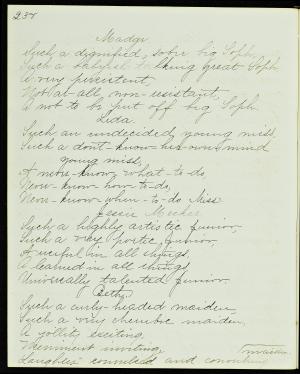 237
Madge
Such a dignified, sobre big Soph,
Such a talking great Soph
A very persistent,
Not at all, non-resistant,
A not to be put off big Soph.
Leda.
Such an undecided young miss,
Such a don't-know-her-own mind
young miss,
A never-know what-to-do,
Never-know how-to-do,
Never-know when-to-do Miss
Jessie Meeker
Such a highly artistic junior,
Such a very poetic junior,
in all things,
A learned in all things
Universally talented junior.
Beth
Such a curly-headed maiden,
Such a very cherubic maiden,
A jollity exciting,
Merriment inviting,
maiden
Laughter and